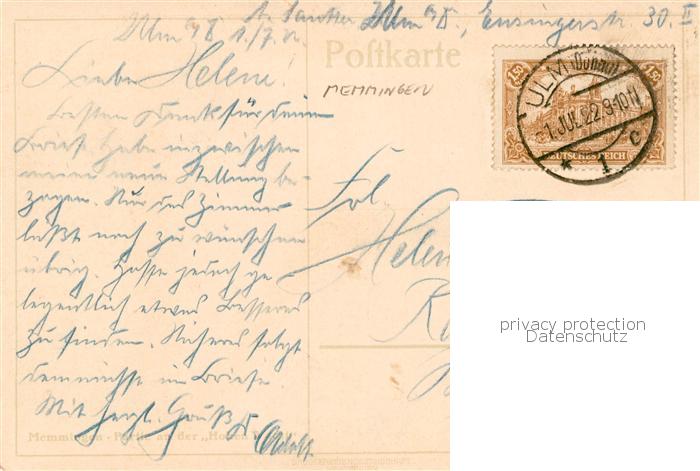 Ulm a/D, Ensingerstr. 30. II
Ulm a/D 1./7. 22.
Postkarte
MEMMINGEN
1,50
ULM (Donau)
1.JUL.22.9-10N
* 1 c
DEUTSCHES REICH
Liebe Helene!
Besten Dank für Deinen
Brief. Habe inzwischen
meine neue Stellung be-
zogen. Nur das Zimmer
läßt noch zu wünschen
übrig. Hoffe jedoch ge-
legentlich etwas Besseres
zu finden. Näheres folgt
demnächst im Briefe.
Mit herzl. Gruß
Adolf
Frl.
Helen
privacy protection
Datenschutz
Memmingen - Partie an der „Hohen